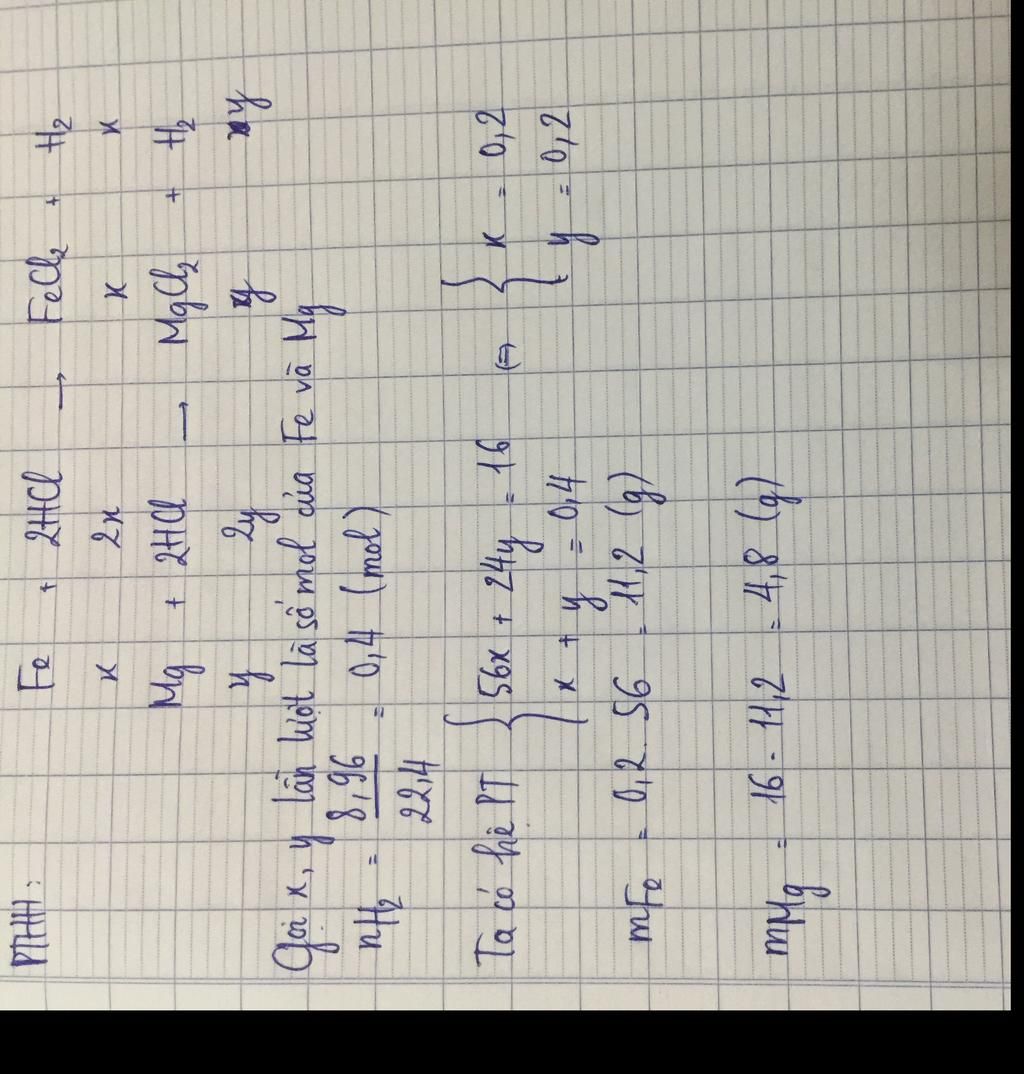 PTHH:
Fe + 2HCl → FeCl2 + H2
x 2x x x
Mg + 2HCl → MgCl2 + H2
y 2y y y
Gọi x, y lần lượt là số mol của Fe và Mg
nH2 = 8,96 / 22,4 = 0,4 (mol)
Ta có hệ PT { 56x + 24y = 16 (=) { x = 0,2
{ x + y = 0,4 { y = 0,2
mFe = 0,2 . 56 = 11,2 (g)
mMg = 16 - 11,2 = 4,8 (g)